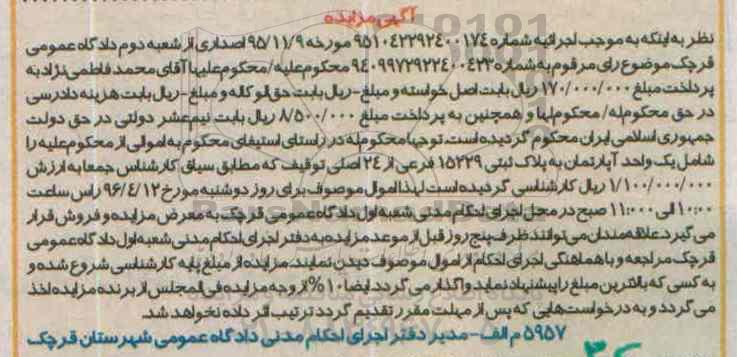 آگهی مزایده
نظر به اینکه به موجب اجرائیه شماره ۹۵۱۰۴۲۲۹۲۴۰۰۱۷۴ مورخه ۹۵/۱۱/۹ اصداری از شعبه دوم دادگاه عمومی
قرچک موضوع رای مرقوم به شماره ۹۴۰۹۹۷۲۹۲۲۴۰۰۴۲۳ محکوم‌علیه/محکوم‌علیها آقای محمد فاطمی‌نژاد به
پرداخت مبلغ ۱۷۰/۰۰۰/۰۰۰ ریال بابت اصل خواسته و مبلغ -ریال بابت حق‌الوکاله و مبلغ -ریال بابت هزینه دادرسی
در حق محکوم‌له/ محکوم‌لها و همچنین به پرداخت مبلغ ۸/۵۰۰/۰۰۰ ریال بابت نیم‌عشر دولتی در حق دولت
جمهوری اسلامی ایران محکوم گردیده است. توجها محکوم‌له در راستای استیفای محکوم به اموالی از محکوم‌علیه را
شامل یک واحد آپارتمان به پلاک ثبتی ۱۵۲۲۹ فرعی از ۲۴ اصلی توقیف که مطابق سیاق کارشناس جمعا به ارزش
۱/۱۰۰/۰۰۰/۰۰۰ ریال کارشناسی گردیده است لهذا اموال موصوف برای روز دوشنبه مورخ ۹۶/۴/۱۲ راس ساعت
۱۰:۰۰ الی ۱۱:۰۰ صبح در محل اجرای احکام مدنی شعبه اول دادگاه عمومی قرچک به معرض مزایده و فروش قرار
می گیرد. علاقه‌مندان می‌توانند ظرف پنج روز قبل از موعد مزایده به دفتر اجرای احکام مدنی شعبه اول دادگاه عمومی
قرچک مراجعه و با هماهنگی اجرای احکام از اموال موصوف دیدن نمایند. مزایده از مبلغ پایه کارشناسی شروع شده و
به کسی که بالاترین مبلغ را پیشنهاد نماید واگذار می گردد. ایضا ۱۰% از وجه مزایده فی‌المجلس از برنده مزایده اخذ
می گردد و به درخواست‌هایی که پس از مهلت مقرر تقدیم گردد ترتیب اثر داده نخواهد شد.
۵۹۵۷ م الف - مدیر دفتر اجرای احکام مدنی دادگاه عمومی شهرستان قرچک